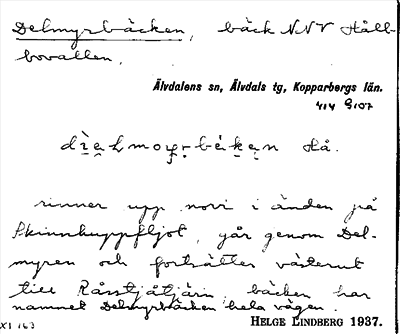 Delmyrbäcken, bäck NNV Håll-
bovallen.
Älvdalens sn, Älvdals tg, Kopparbergs län.
414 9107
Hå.
rinner upp norr i änden på
Skinnkuppfljot, går genom Del-
myren och fortsätter västerut
till Råsstjåtjärn bäcken har
namnet Delmyrbäcken hela vägen.
XI 163 HELGE LINDBERG 1937.